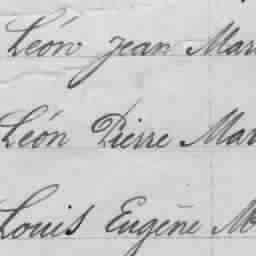 Léon Jean Mar
Léon Pierre Mar
Louis Eugène M